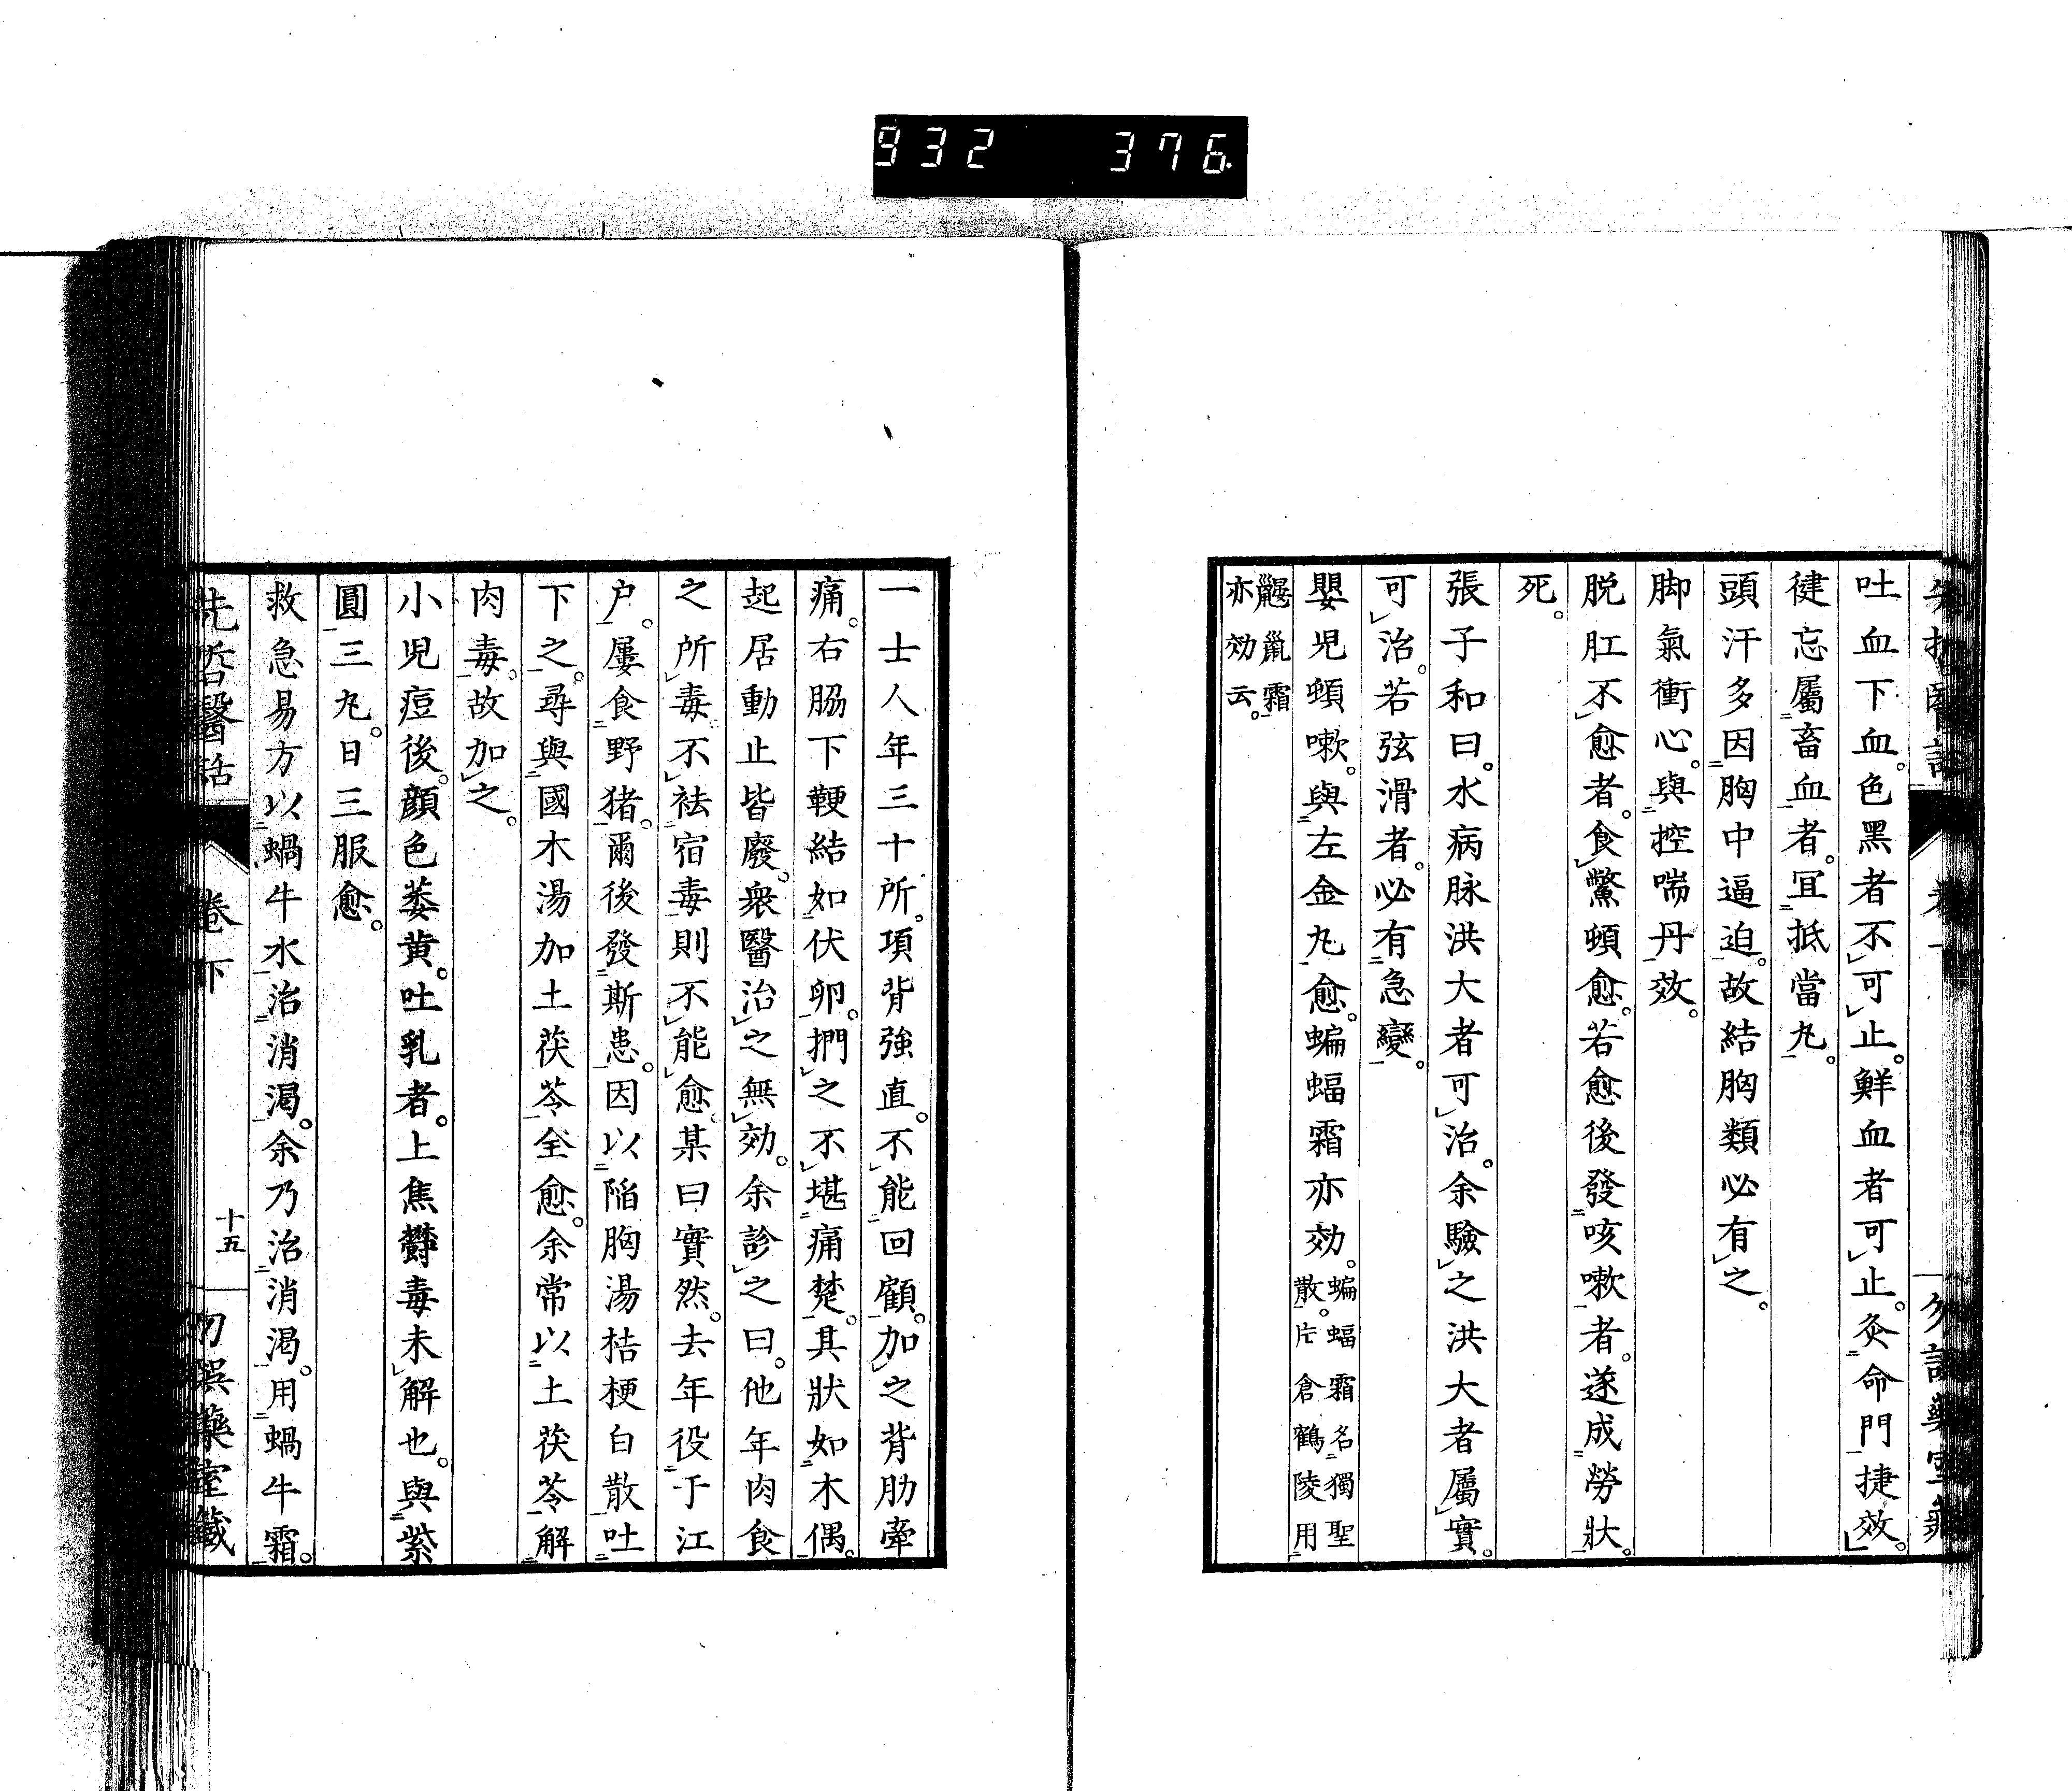 932 376
吐血下血。色黑者不可止。鮮血者可止。灸命門捷效。
健忘屬畜血者。宜抵當丸。
頭汗多因胸中逼迫。故結胸類必有之。
脚氣衝心。與控喘丹效。
脱肛不愈者。食鱉頓愈。若愈後發咳嗽者。遂成勞狀。
死。
張子和曰。水病脉洪大者可治。余驗之洪大者屬實。
可治。若弦滑者。必有急變。
嬰児頓嗽。與左金丸愈。蝙蝠霜亦効。蝙蝠霜名獨聖
散。片倉鶴陵用
鼴鼠霜
亦効云。
一士人年三十所。項背強直。不能回顧。加之背肋牽
痛。右脇下鞕結如伏卵。捫之不堪痛楚。其狀如木偶。
起居動止皆廢。衆醫治之無効。余診之曰。他年肉食
之所毒。不袪宿毒則不能愈。某曰實然。去年役于江
户。屢食野猪。爾後發斯患。因以陷胸湯桔梗白散吐
下之。尋與國木湯加土茯苓全愈。余常以土茯苓解
肉毒。故加之。
小児痘後。顔色萎黄。吐乳者。上焦欝毒未解也。與紫
圓三丸。日三服愈。
救急易方以蝸牛水治消渇。余乃治消渇。用蝸牛霜。
先哲醫話 卷下 十五 勿誤藥室藏